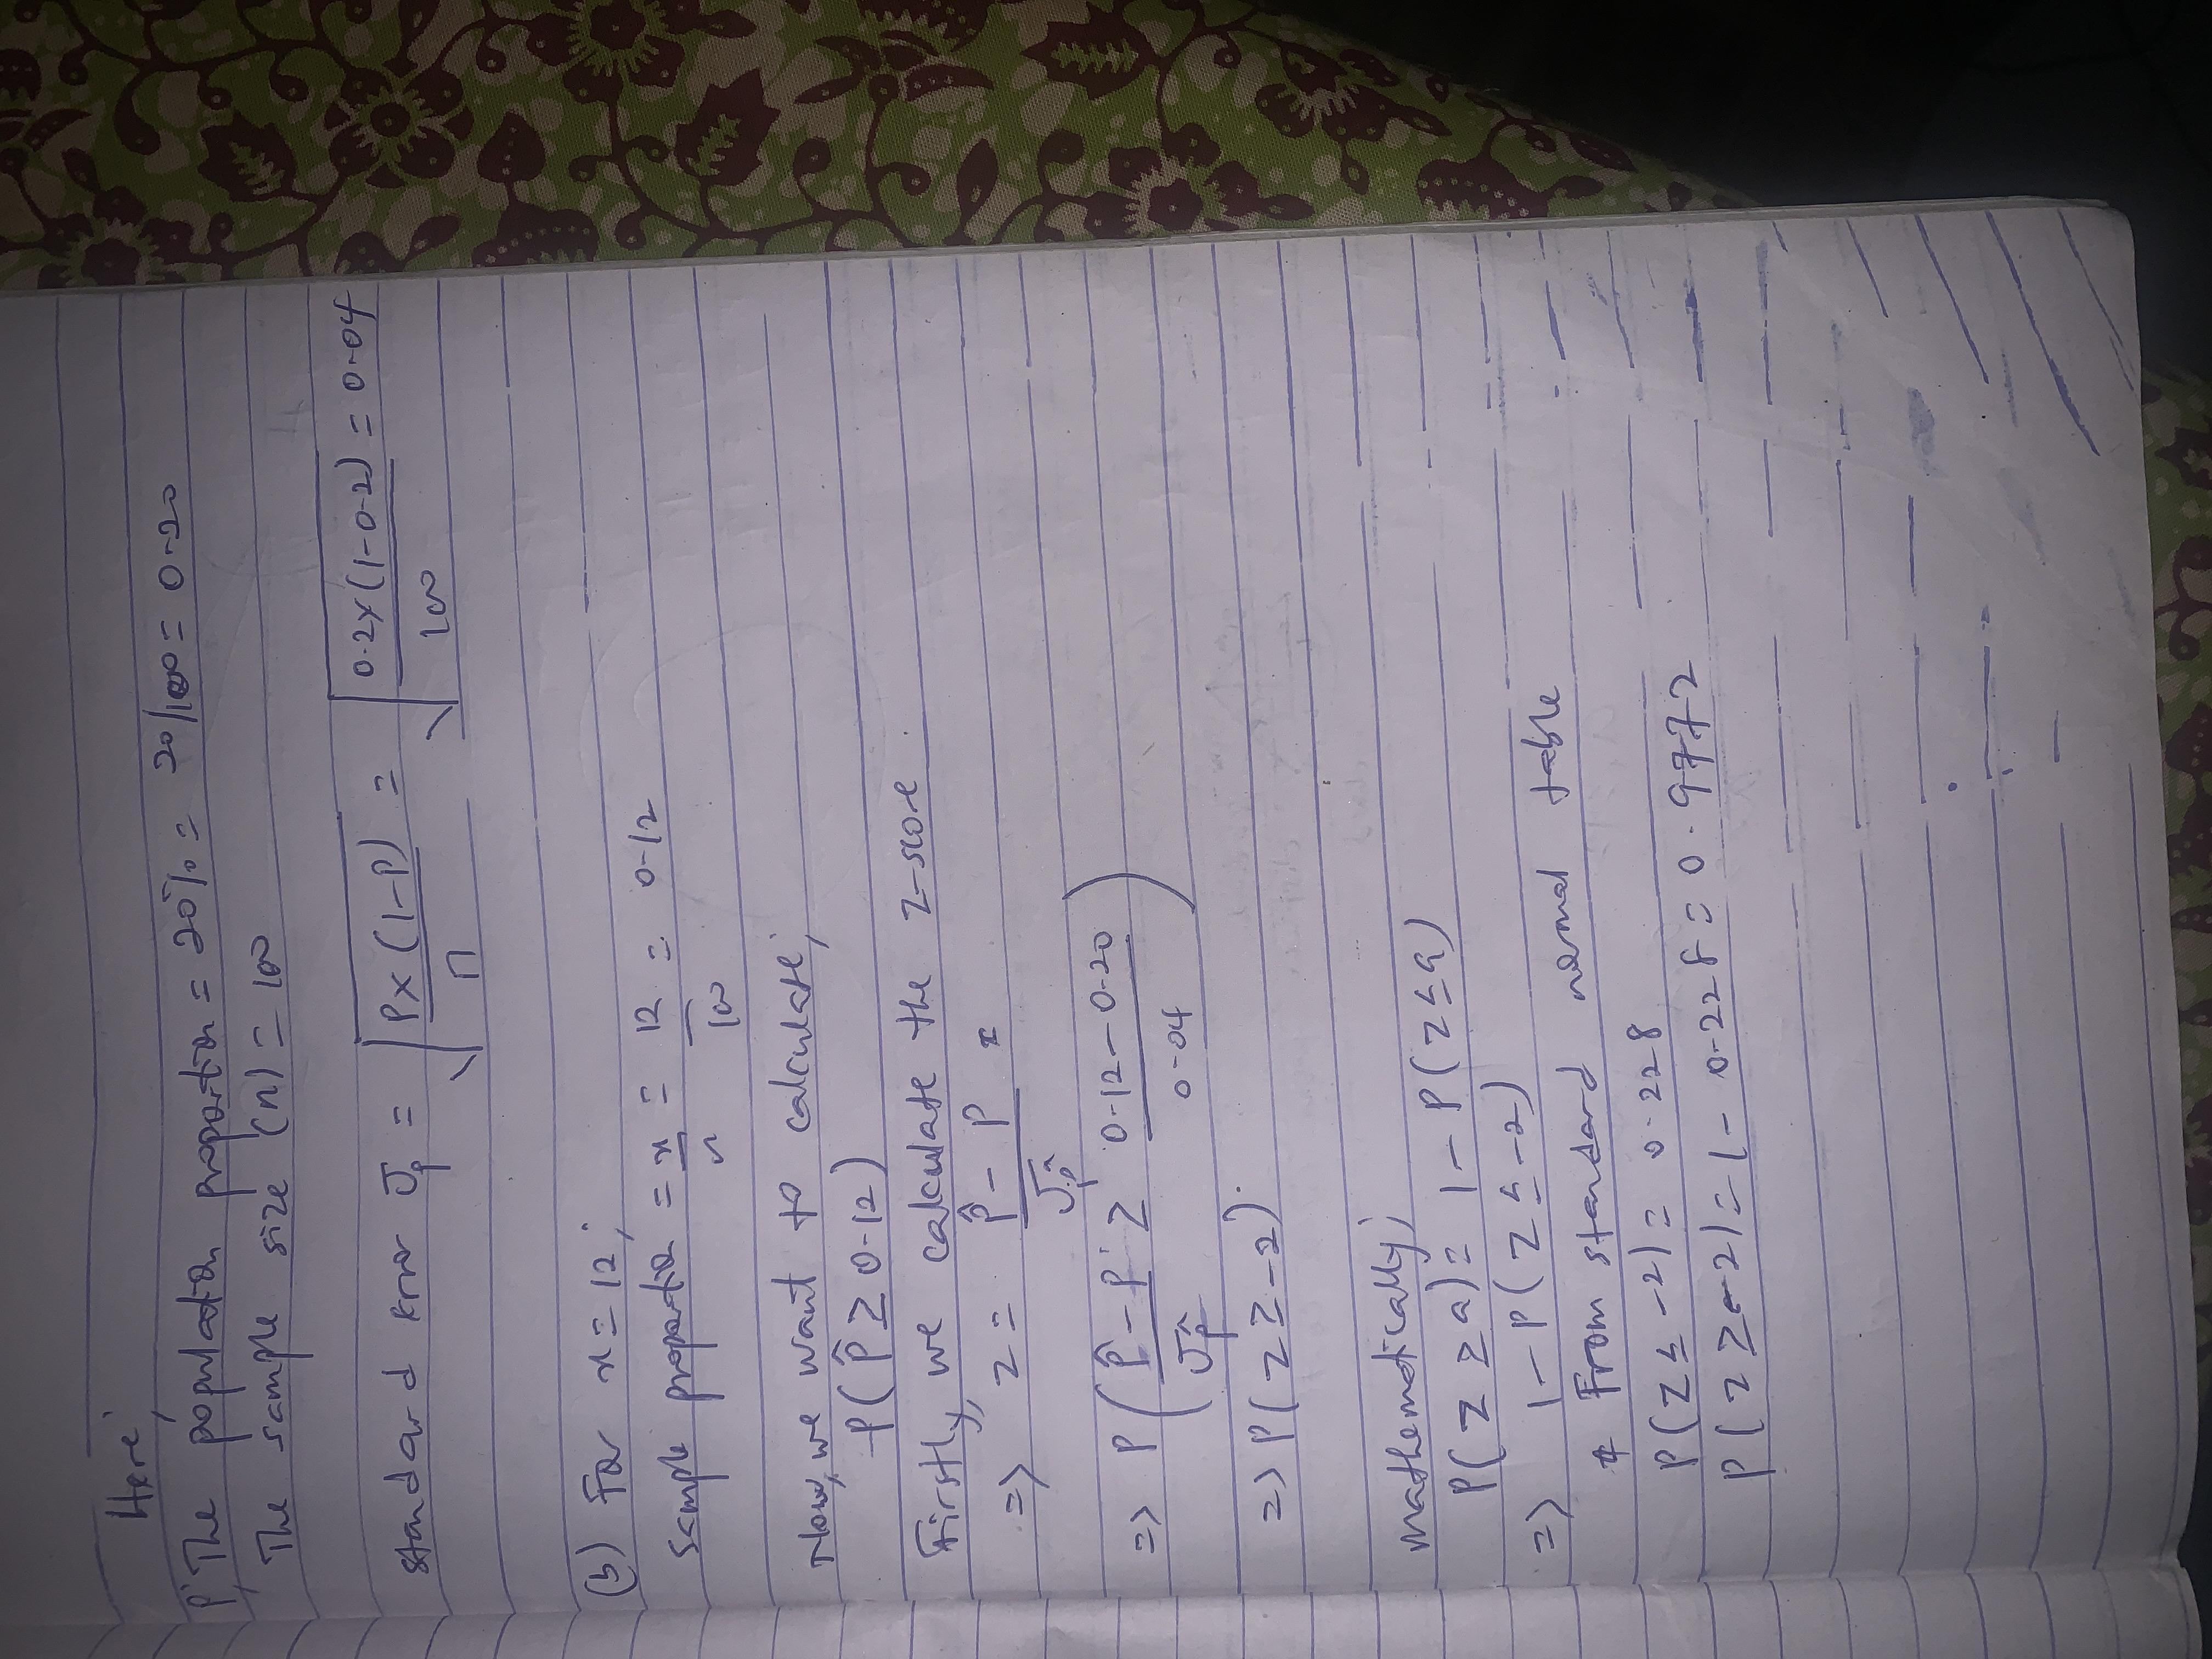 Here,
P, The population proportion = 20% = 20/100 = 0.20
The sample size (n) = 100
standard error σp̂ = √(P×(1-P)/n) = √(0.2×(1-0.2)/100) = 0.04
(b) For x = 12,
sample proportion = x/n = 12/100 = 0.12
Now, we want to calculate,
P(p̂ ≥ 0.12)
Firstly, we calculate the z-score
=> z = (p̂ - P)/σp̂
=> P((p̂ - P)/σp̂ ≥ (0.12 - 0.20)/0.04)
=> P(Z ≥ -2).
Mathematically,
P(Z ≥ a) = 1 - P(Z ≤ a)
=> 1 - P(Z ≤ -2)
* From standard normal table
P(Z ≤ -2) = 0.228
P(Z ≥ -2) = 1 - 0.228 = 0.9772